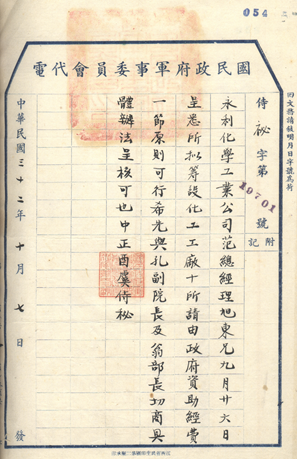 054
國民政府軍事委員會代電
回文務請敘明月日字號為荷
侍祕字第19701號 附記
永利化學工業公司范總經理旭東兄九月廿六日
呈悉所擬籌設化工工廠十所請由政府資助經費
一節原則可行希先與孔副院長及翁部長切商具
體辦法呈核可也中正酉虞侍祕
中華民國三十二年十月七日發